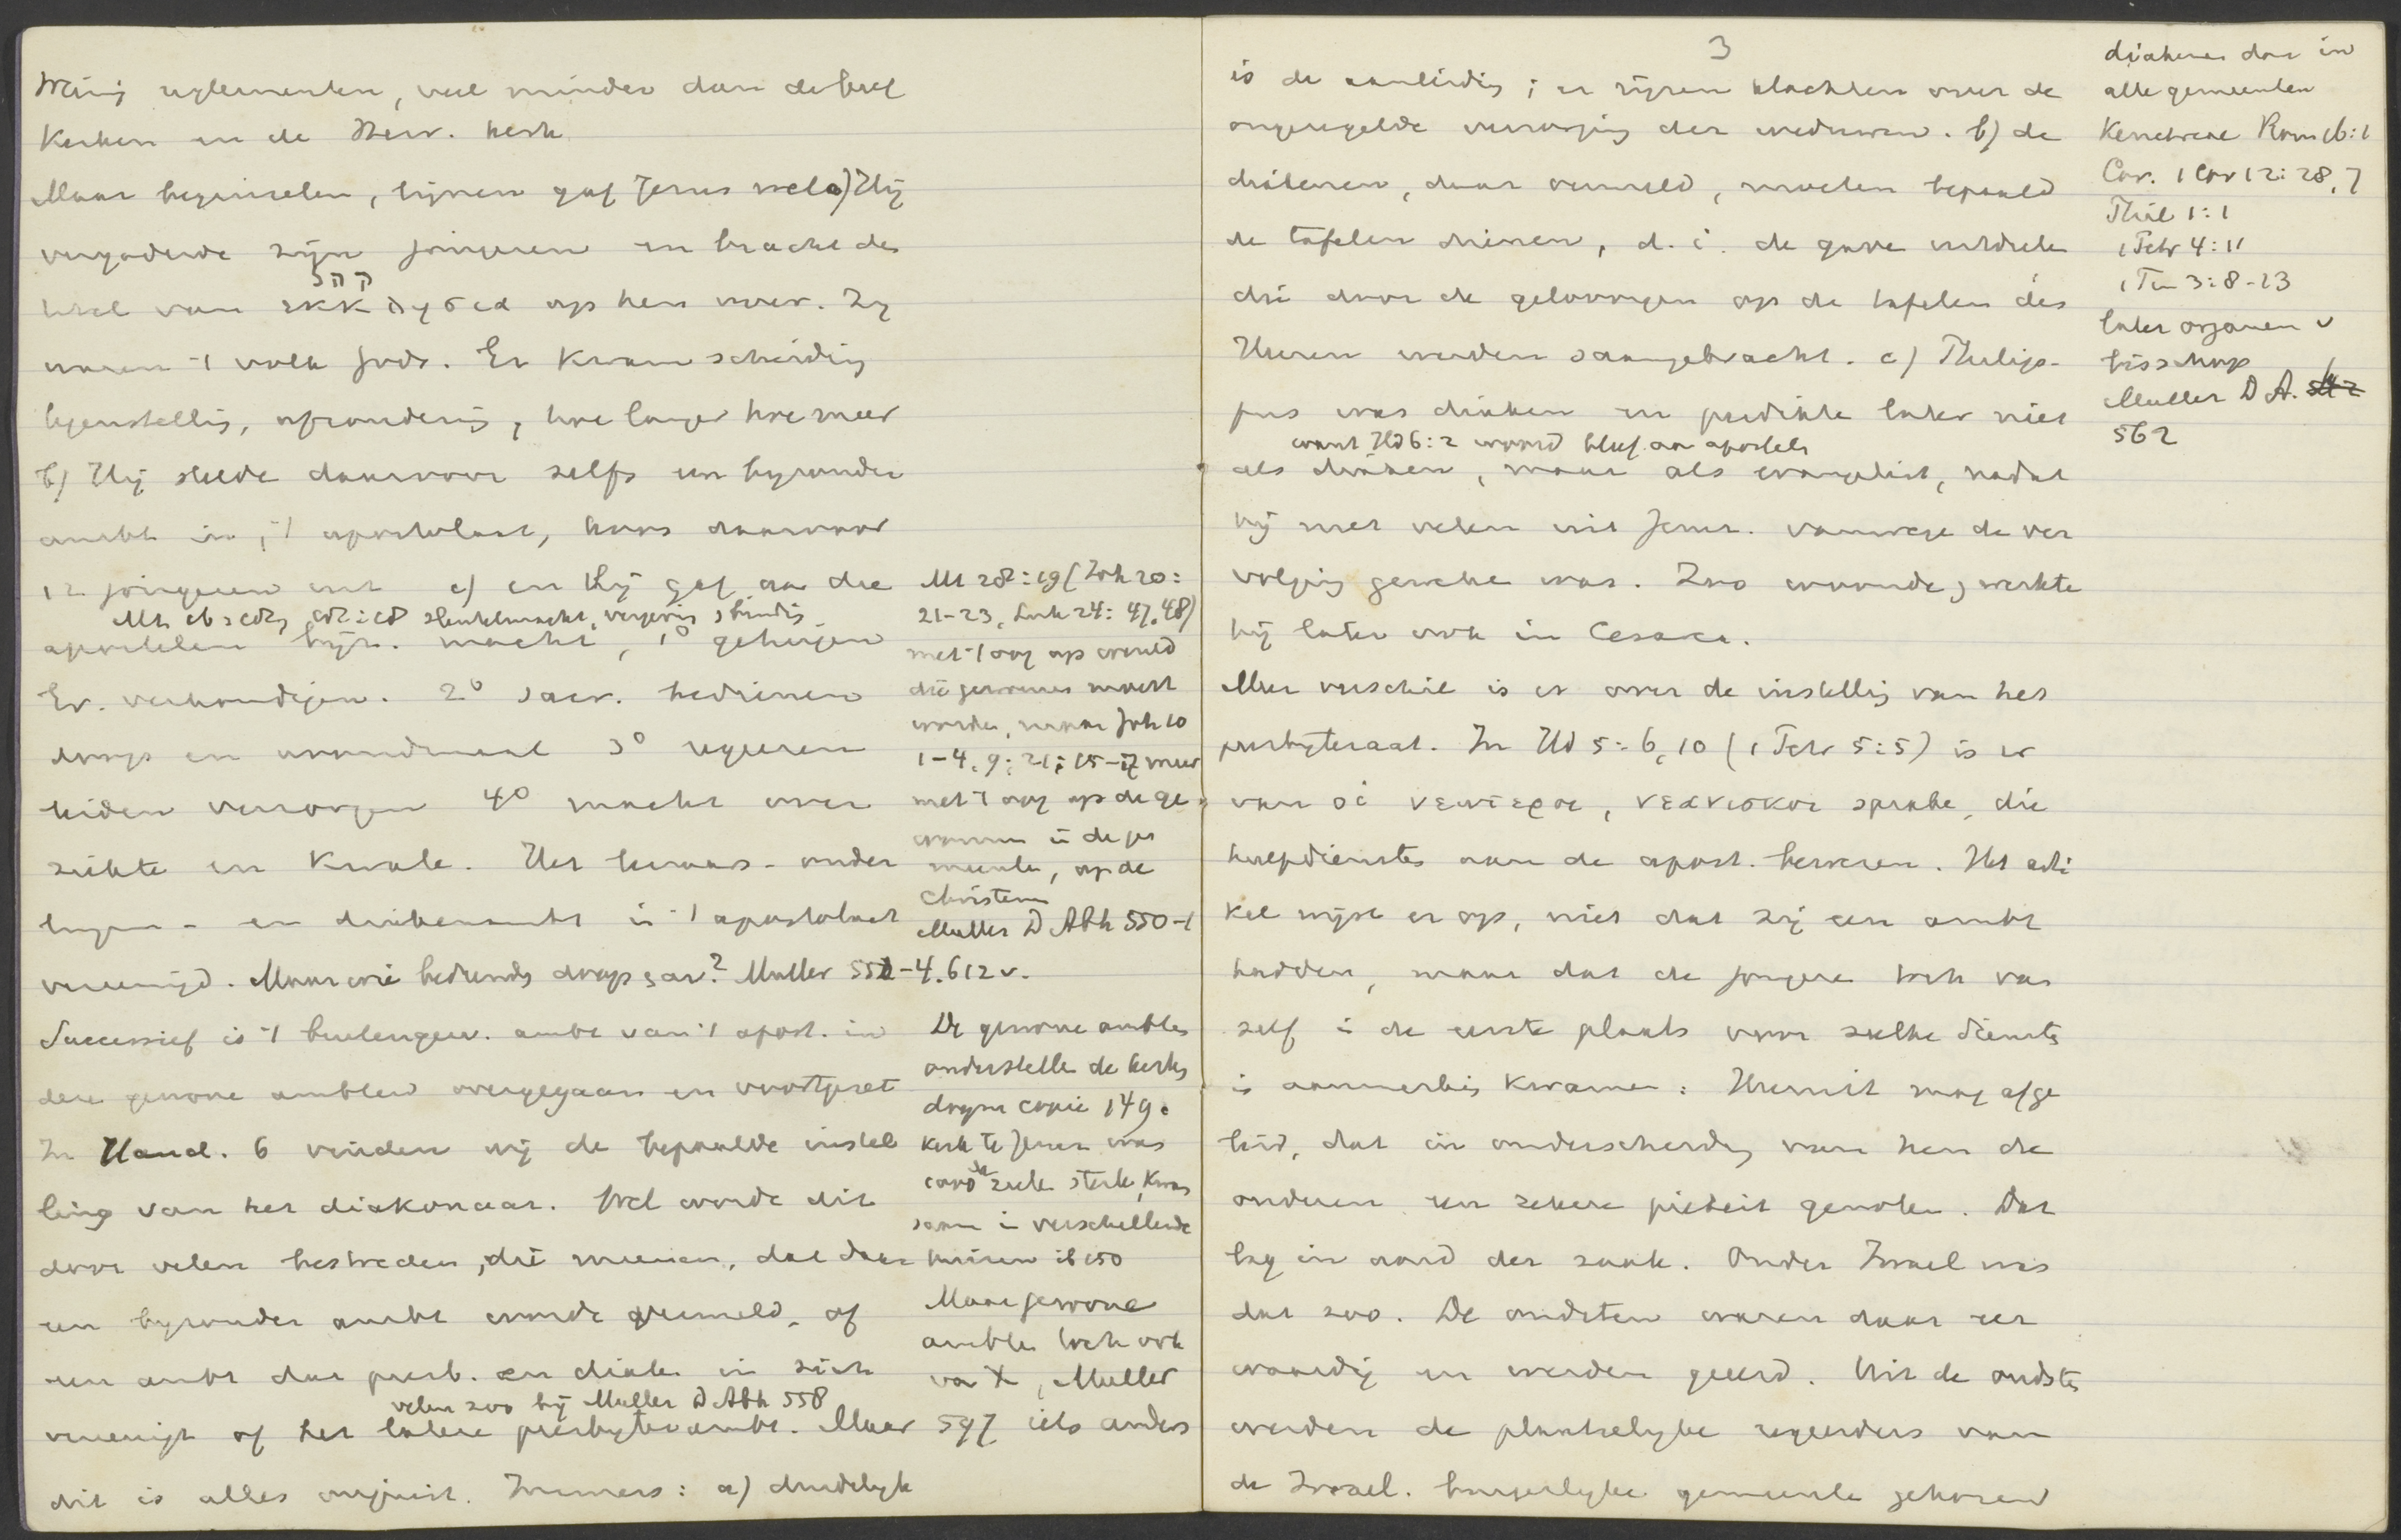 Weinig reglementen, veel minder dan de Geref
Kerken en de Herv. kerk
Maar beginselen, lijnen gaf Jezus wel a) Hij
vergaderde zijn jongeren en bracht den
titel van קהל ἐκκλησια op hen over. Zij
waren 't volk Gods. Er kwam scheiding
tegenstelling, afzondering, hoe langer hoe meer
b) Hij stelde daarvoor zelfs een byzonder
ambt in, 't apostolaat, koos daarvoor
12 jongeren uit c) en Hij gaf aan die
Mt 16:19, 18:18 sleutelmacht, vergeving zonden
apostelen byz. macht, 1° getuigen
Ev. verkondigen. 2° sacr. bedienen
doop en avondmaal 3° regeeren
leiden verzorgen 4° macht over
ziekte en kwale. Het leeraars- ouder
lingen- en diakenambt is in 't apostolaat
vereenigd. Maar wie bediende doop & av? Muller 552-4. 612 v.
Successief is 't buitengew. ambt van 't apost. in
deze gewone ambten overgegaan en voortgezet
In Hand. 6 vinden wij de bepaalde instel
ling van het diakonaat. Wel wordt dit
door velen bestreden, die meenen, dat daar
een byzonder ambt wordt gemeld, of
een ambt dat presb. en diaken in zich
velen zoo bij Muller D Abh 558
vereenigt of het latere presbyterambt. Maar
dit is alles onjuist. Immers: a) duidelyk
Mt 28:19 (Joh 20:
21-23, Luk 24: 47.48)
met 't oog op wereld
die gewonnen moest
worden, maar Joh 10
1-4, 9; 21:15-17 meer
met 't oog op de ge
wonnen in de ge
meente, op de
Christenen
Muller D Abh 550-1
De gewone ambten
onderstelle de kerk
dogm copie 149.
Kerk te Jeruz was
5000 ziele sterk, kwam
saam in verschillende
huizen ib 150
Maar gewone
ambten toch ook
van X, Muller
597 iets anders
3
is de aanleiding; er rijzen klachten over de
ongeregelde verzorging der weduwen. b) de
diakenen, daar vermeld, moeten bepaald
de tafelen dienen, d. i. de gave uitdeelen
die door de geloovigen op de tafelen des
Heeren werden saamgebracht. c) Philip-
pus was diaken en predikte later niet
want Hd 6:2 woord bleef aan apostels
als diaken, maar als evangelist, nadat
hij met velen uit Jeruz. vanwege de ver
volging geweken was. Zoo woonde & werkte
hij later ook in Cesarea.
Meer verschil is er over de instelling van het
presbyteraat. In Hd 5:6,10 (1 Petr 5:5) is er
van οἱ νεωτεροι, νεανισκοι sprake, die
hulpdiensten aan de apost. bewezen. Het arti
kel wijst er op, niet dat zij een ambt
hadden, maar dat de jongere toch van
zelf in de eerste plaats voor zulke diensten
in aanmerking kwamen: Hieruit mag afge
leid, dat in onderscheiding van hen de
ouderen een zekere piëteit genoten. Dat
lag in aard der zaak. Onder Israel was
dat zoo. De oudsten waren daar eer
waardig en werden geëerd. Uit de oudsten
werden de plaatselyke regeerders van
de Israel. burgerlyke gemeente gekozen
diakenen dan in
alle gemeenten
Kenchreae Rom 16:1
Cor. 1 Cor 12:28, 7
Phil 1:1
1 Petr 4:11
1 Tim 3:8-13
later organen v
bisschop
Muller D A.
562